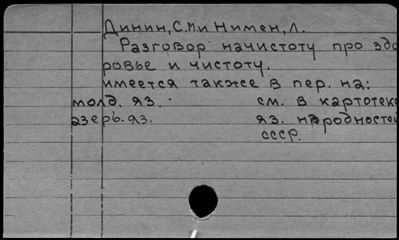 Динин, С.М и Нимен, Л.
Разговор начистоту про здо
ровье и чистоту.
имеется также в пер. на:
молд. яз. см. в картотеке
азерь. яз. яз. народностей
СССР.